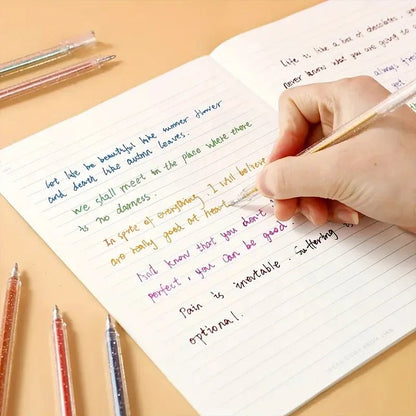 let life be beautiful like summer flower
and death like autumn leaves.
we shall meet in the place where there
is no darness.
In spite of everything, I will believe
are really good at heart
And know that you don't
perfect, you can be good
Pain is inevitable. Suffering is
optional.
Life is like a box of chocolates.
never know what you are going to
always
yet